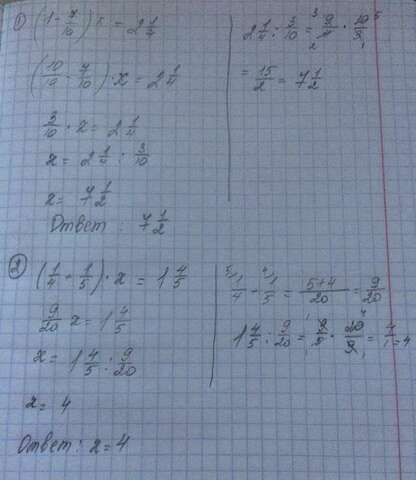 1) (1 - 7/10) x = 2 1/4
(10/10 - 7/10) · x = 2 1/4
3/10 · x = 2 1/4
x = 2 1/4 : 3/10
x = 7 1/2
Ответ : 7 1/2
2 1/4 : 3/10 = 9/4 · 10/3
= 15/2 = 7 1/2
2) (1/4 + 1/5) · x = 1 4/5
9/20 x = 1 4/5
x = 1 4/5 : 9/20
x = 4
Ответ : x = 4
1/4 + 1/5 = 5+4/20 = 9/20
1 4/5 : 9/20 = 9/5 · 20/9 = 4/1 = 4